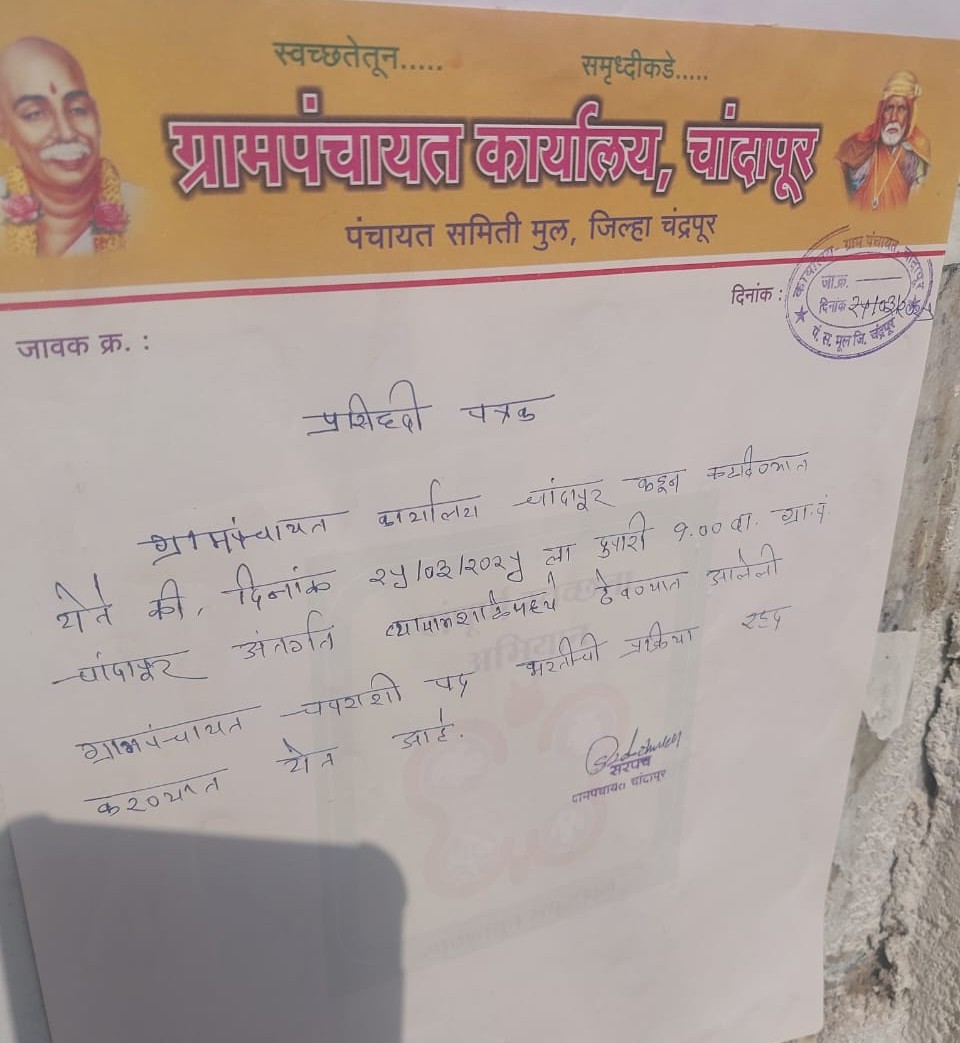 स्वच्छतेतून..... समृध्दीकडे.....
ग्रामपंचायत कार्यालय, चांदापूर
पंचायत समिती मुल, जिल्हा चंद्रपूर
दिनांक :
कार्यालय- ग्राम पंचायत, चांदापूर
जा.क्र.
दिनांक २५/०३/२०२५
पं. स. मूल जि. चंद्रपूर
जावक क्र. :
प्रसिध्दी पत्रक
ग्रामपंचायत कार्यालय चांदापूर कडून कळविण्यात
येते की, दिनांक २५/०३/२०२५ ला दुपारी १.०० वा. ग्रा.पं.
चांदापूर अंतर्गत व्यायामशाळेमध्ये ठेवण्यात आलेली
ग्रामपंचायत चपराशी पद भरतीची प्रक्रिया रद्द
करण्यात येत आहे.
सरपंच
ग्रामपंचायत चांदापूर